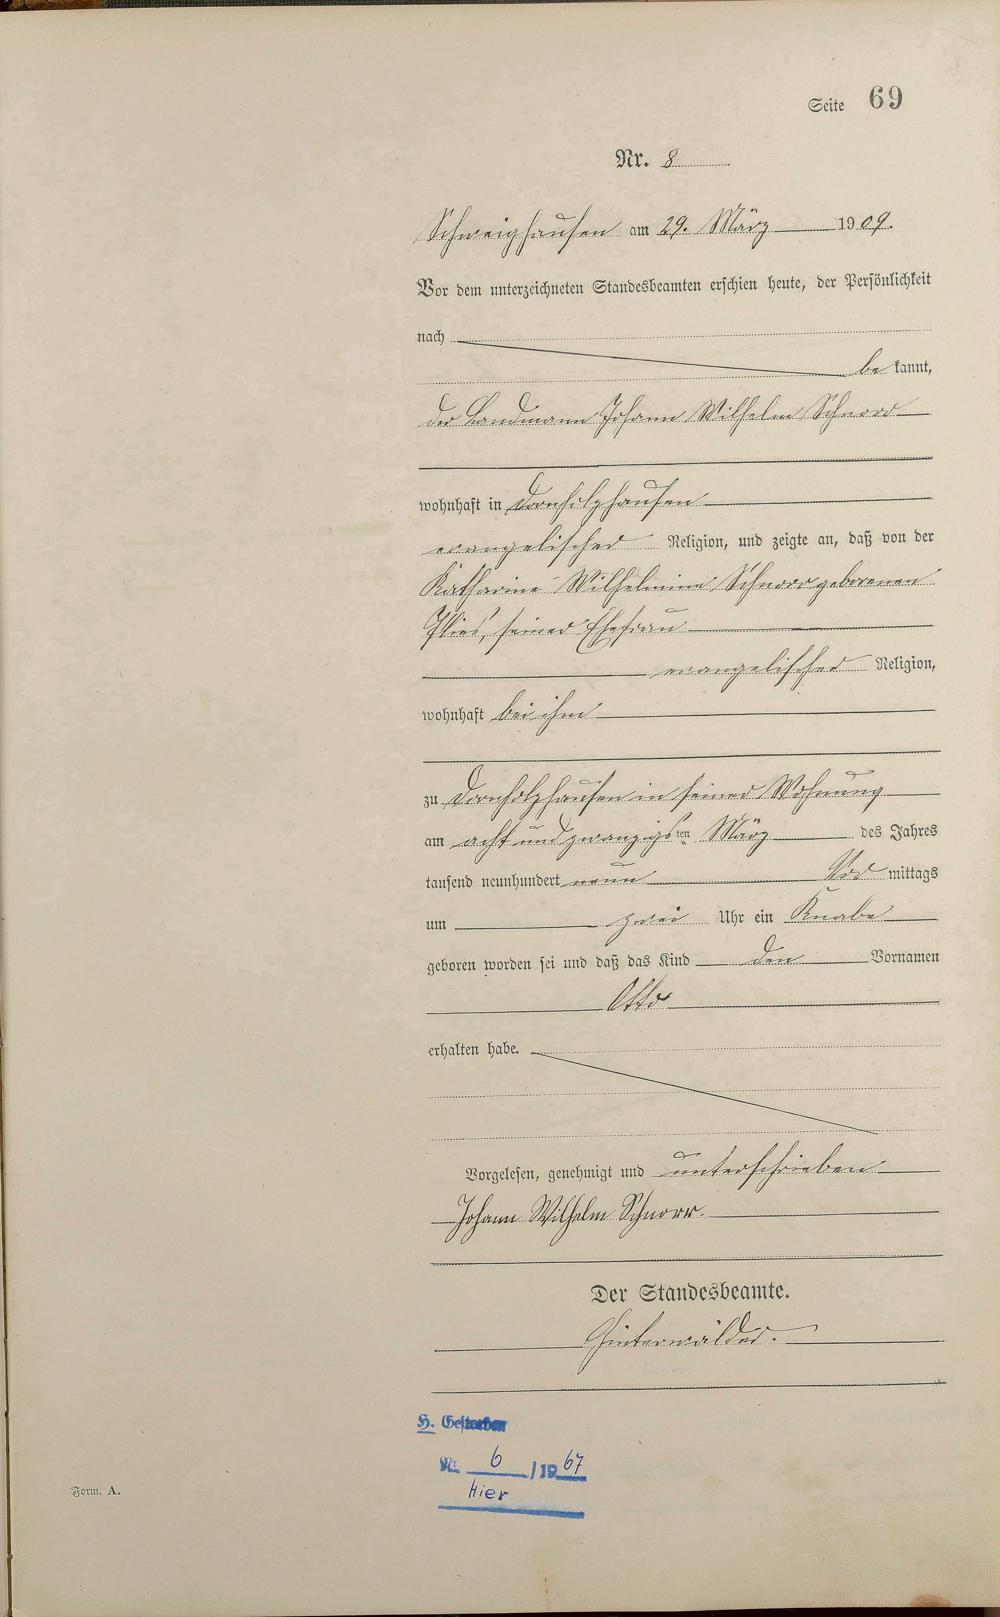 Seite 69
Nr. 8
Schweighausen am 29. März 1909.
Vor dem unterzeichneten Standesbeamten erschien heute, der Persönlichkeit
nach
be kannt,
der Landmann Johann Wilhelm Schnorr
wohnhaft in Dornholzhausen
evangelischer Religion, und zeigte an, daß von der
Katharine Wilhelmine Schnorr geborenen
seiner Ehefrau
evangelischer Religion,
wohnhaft bei ihm
zu Dornholzhausen in seiner Wohnung
am acht und zwanzigsten März des Jahres
tausend neunhundert neun Vor mittags
um zwei Uhr ein Knabe
geboren worden sei und daß das Kind den Vornamen
Otto
erhalten habe.
Vorgelesen, genehmigt und unterschrieben
Johann Wilhelm Schnorr.
Der Standesbeamte.
Hinterwälder.
H. Gestorben
Nr. 6 /1967
Hier
Form. A.